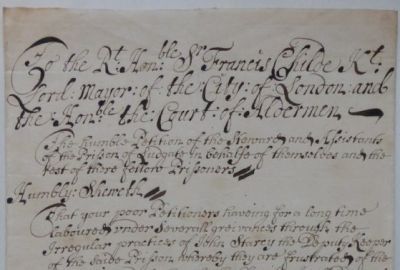 To the Rt. Honble Sr Francis Childe Kt.
Lord: Mayor: of the City: of London: and
the Honble the Court: of Aldermen
The humble Petition of the Steward and Assistants
of the Prison of Ludgate in behalfe of themselves and the
rest of there fellow Prissoners
Humbly: Sheweth
That your poor Petitioners haveing for a long time
laboured under severall greivances through the
Irregular practices of John Starey the Deputy Keeper
of the saide Prisson whereby they are frustrated of the